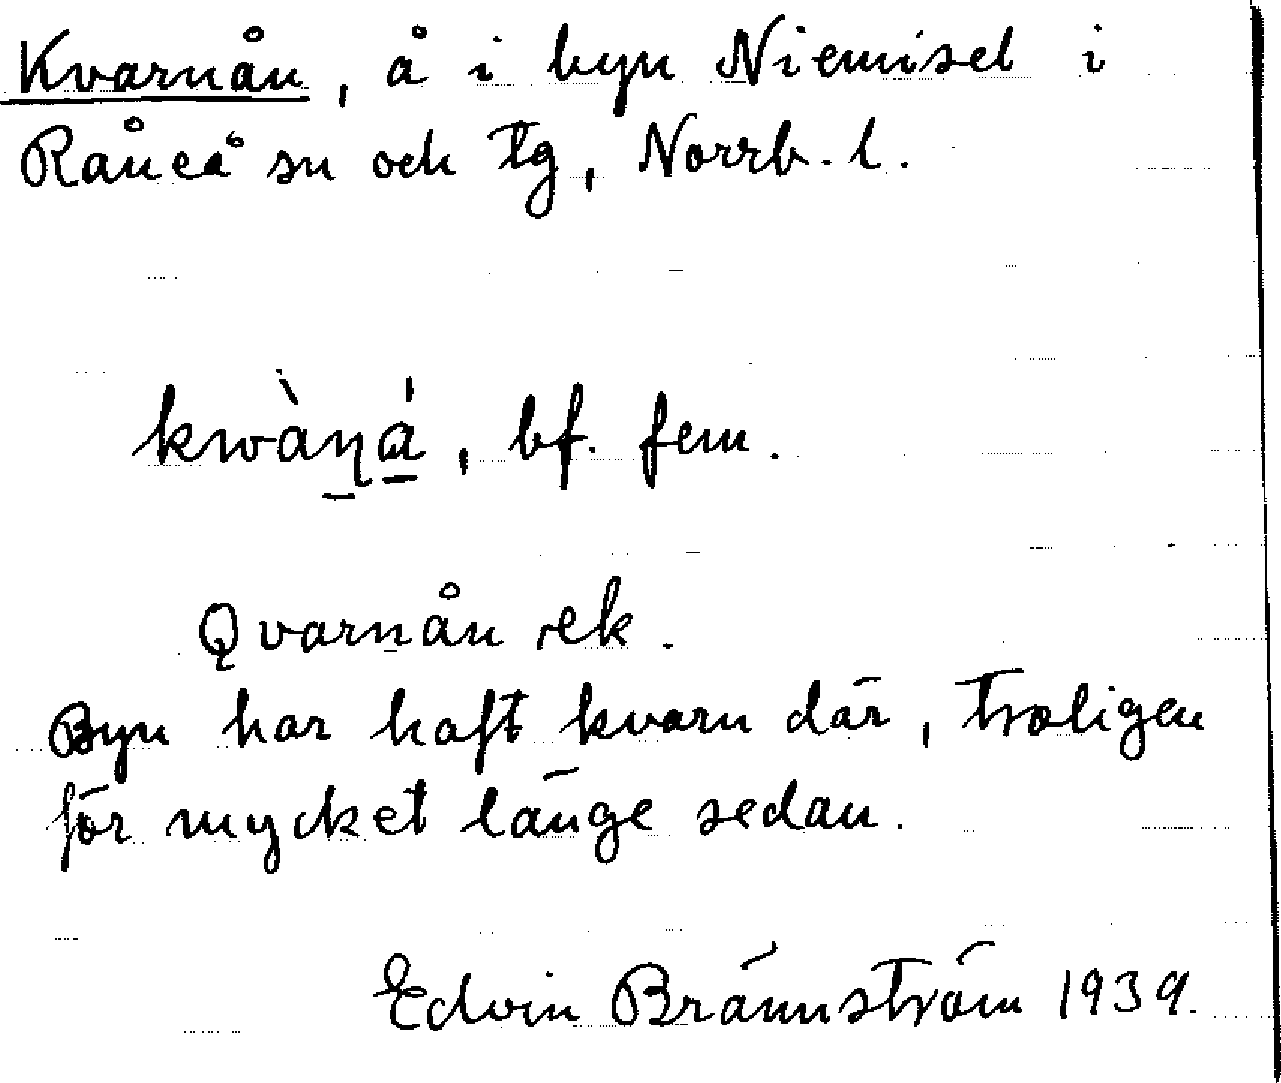 Kvarnån, å i byn Niemisel i
Råneå sn och tg, Norrb. l.
kwàṉá̱, bf. fem.
Qvarnån rek.
Byn har haft kvarn där, troligen
för mycket länge sedan.
Edvin Brännström 1939.